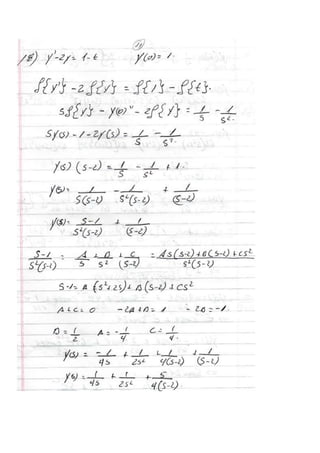 19
18) y'-2y = 1-t    y(0) = 1
ℒ{y'} - 2ℒ{y} = ℒ{1} - ℒ{t}.
sℒ{y} - y(0)" - 2ℒ{y} = 1/s - 1/s².
sY(s) - 1 - 2Y(s) = 1/s - 1/s².
Y(s) (s-2) = 1/s - 1/s² + 1.
Y(s) = 1/s(s-2) - 1/s²(s-2) + 1/(s-2)
Y(s) = s-1/s²(s-2) + 1/(s-2)
s-1/s²(s-2) = A/s + B/s² + C/(s-2) = As(s-2)+B(s-2)+Cs²/s²(s-2)
s-1 = A(s²+2s)+B(s-2)+Cs²
A+C = 0    -2A+B = 1    -2B = -1.
B = 1/2    A = -1/4    C = 1/4.
Y(s) = -1/4s + 1/2s² + 1/4(s-2) + 1/(s-2)
Y(s) = -1/4s + 1/2s² + 5/4(s-2).